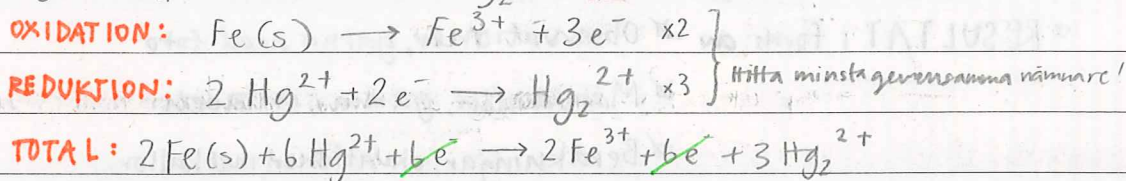 OXIDATION: Fe(s) → Fe³⁺ + 3e⁻ ×2
REDUKTION: 2 Hg²⁺ + 2e⁻ → Hg₂²⁺ ×3 } Hitta minsta gemensamma nämnare!
TOTAL: 2 Fe(s) + 6 Hg²⁺ + 6e⁻ → 2 Fe³⁺ + 6e⁻ + 3 Hg₂²⁺